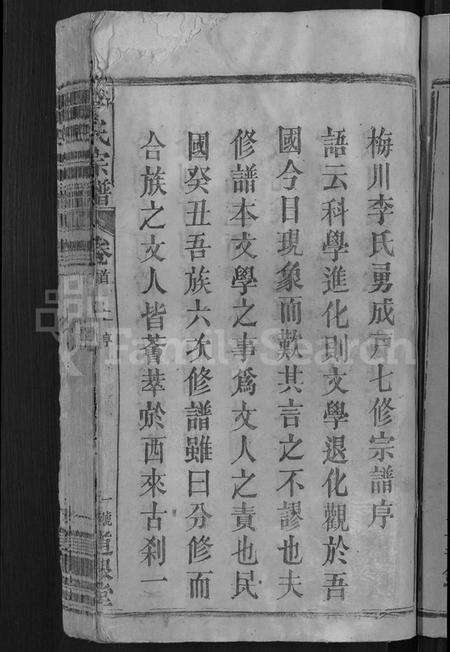 梅川李氏勇成戶七修宗譜序
語云科學進化則文學退化觀於吾
國今日現象而歎其言之不謬也夫
修譜本文學之事爲文人之責也民
國癸丑吾族六次修譜雖曰分修而
合族之文人皆薈萃於西來古刹一
氏宗譜
卷首上
一號
FamilySearch